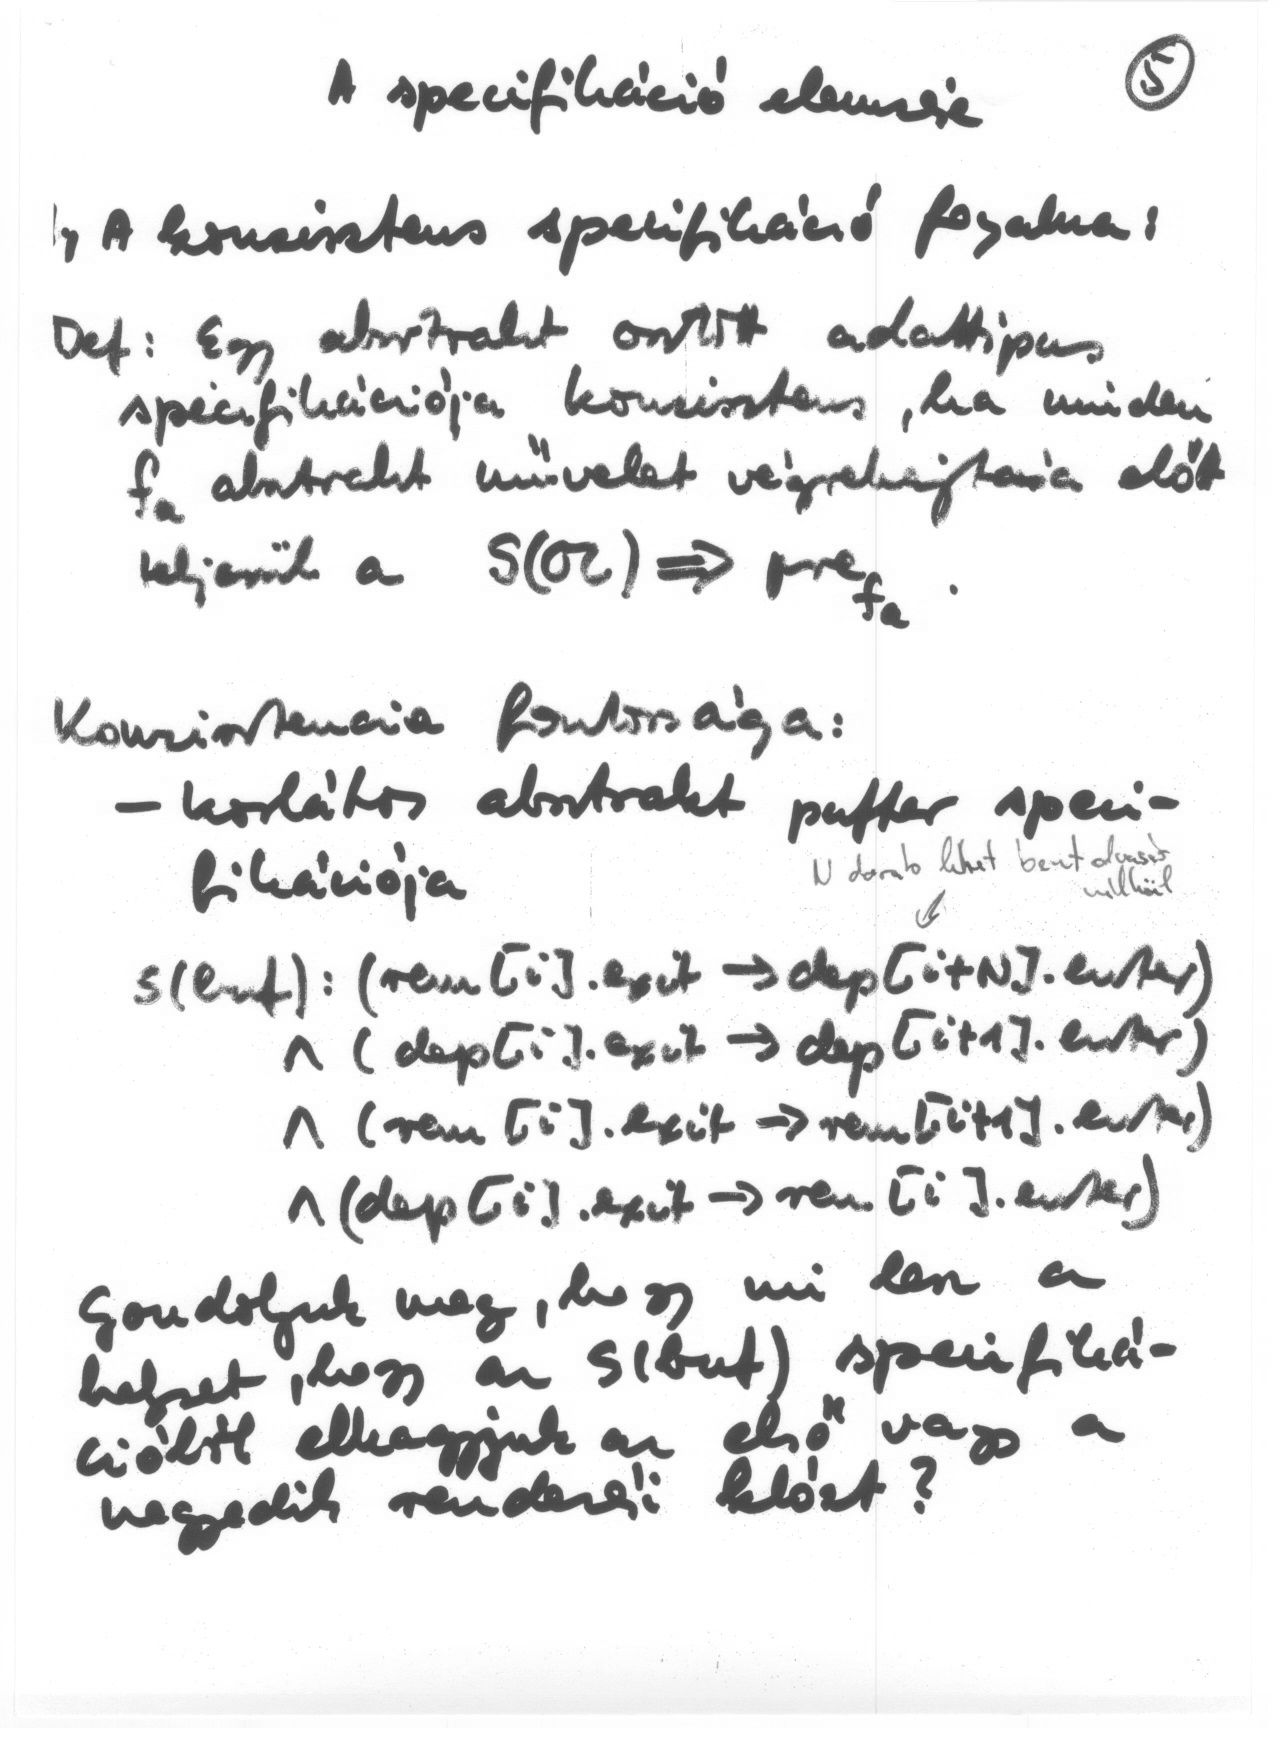 5
A specifikáció elemzése
1, A konzisztens specifikáció fogalma:
Def: Egy absztrakt osztott adattípus
specifikációja konzisztens, ha minden
fa absztrakt művelet végrehajtása előtt
teljesül a S(Ol) ⇒ pre fa .
Konzisztencia fontossága:
- korlátos absztrakt puffer speci-
fikációja
N darab lehet bent olvasás
nélkül
S(buf): (rem[i].exit → dep[i+N].enter)
∧ (dep[i].exit → dep[i+1].enter)
∧ (rem[i].exit → rem[i+1].enter)
∧ (dep[i].exit → rem[i].enter)
Gondoljuk meg, hogy mi lesz a
helyzet, hogy az S(buf) specifiká-
cióból elhagyjuk az első vagy a
negyedik rendezési klózt?